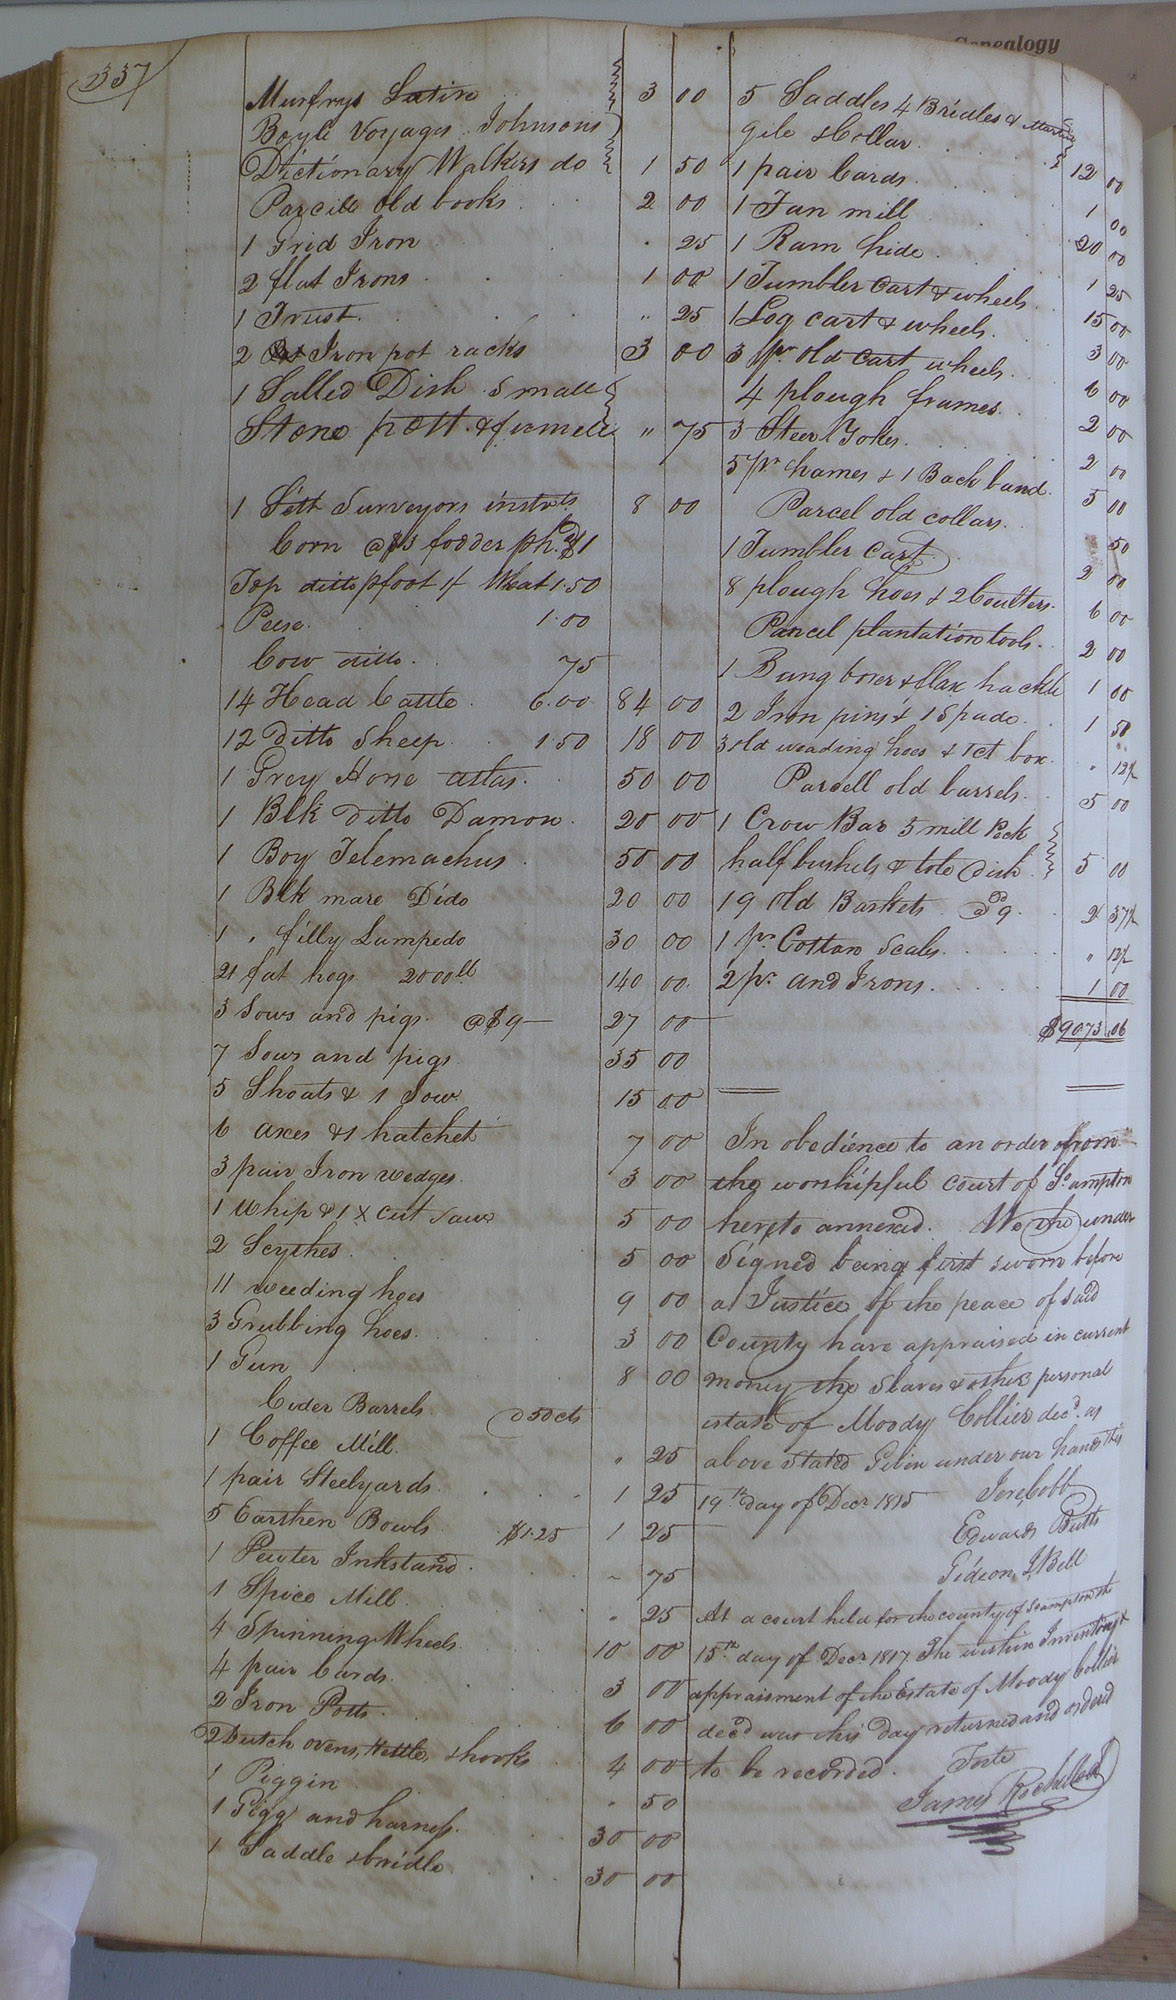 Genealogy
337
Murfrys Latin 3 00
Boyle Voyages Johnsons
Dictionary Walkers do 1 50
Parcill old books 2 00
1 Grid Iron " 25
2 flat Irons 1 00
1 Trust " 25
2 Iron pot racks 3 00
1 Salled Dish Small
Stone pott & " 75
1 Sett Surveyors instrts 8 00
Corn @ $3 fodder ph. $1
Top ditto pfoot 1/ Wheat 1.50
Pease 1.00
Cow ditto 75
14 Head Cattle 6.00 84 00
12 Ditto Sheep 1.50 18 00
1 Grey Horse atlas 50 00
1 Blk Ditto Damon 20 00
1 Boy Telemachus 50 00
1 Blk mare Dido 20 00
1 " filly Lumpedo 30 00
21 fat hogs 2000lb 140 00
3 Sows and pigs @ $9 27 00
7 Sows and pigs 35 00
5 Shoats & 1 Sow 15 00
6 axes & 1 hatchet 7 00
3 pair Iron wedges 3 00
1 Whip & 1 x cut saw 5 00
2 Scythes 5 00
11 weeding hoes 9 00
3 Grubbing hoes 3 00
1 Gun 8 00
Cider Barrels @ 50 cts
1 Coffee Mill " 25
1 pair Steelyards 1 25
5 Earthen Bowls $1.25 1 25
1 Pewter Inkstand " 75
1 Spice Mill " 25
4 Spinning Wheels 10 00
4 pair Cards 3 00
2 Iron Potts 6 00
2 Dutch ovens, Kettle, & hooks 4 00
1 Piggin " 50
1 Gigg and harness 30 00
1 Saddle & bridle 30 00
5 Saddles 4 Bridles &
& Collar 12 00
1 pair Cards 1 00
1 Fan mill 20 00
1 Ram hide 1 25
1 Tumbler Cart & wheels 15 00
1 Log cart & wheels 3 00
3 pr old cart wheels 6 00
4 plough frames 2 00
3 Steer Yokes 2 00
5 pr hames & 1 Back band 5 00
Parcel old collars 50
1 Tumbler Cart 2 00
8 plough hoes & 2 Coulters 6 00
Parcel plantation tools 2 00
1 Bung borer & flax hackle 1 00
2 Iron pins & 1 Spade 1 50
3 old weading hoes & 1 ct box " 12½
Parcell old barrels 5 00
1 Crow Bar 5 mill Peck
half bushels & tole Dish 5 00
19 old Baskets 2 37½
1 pr Cotton Scales " 12½
2 pr and Irons 1 00
$9073.06
In obedience to an order from
the worshipful court of So ampton
hereto annexed. We the under
Signed being first sworn before
a Justice of the peace of said
County have appraised in current
money the Slaves & other personal
estate of Moody Collier decd. as
above stated Given under our hands this
19th day of Decr 1815 Jere Cobb
Edward Butts
Gideon Bell
At a court held for the county of Soampton the
15th day of Decr 1817. The within Inventory &
appraisment of the Estate of Moody Collier
decd was this day returned and ordered
to be recorded. Teste
James Rochelle